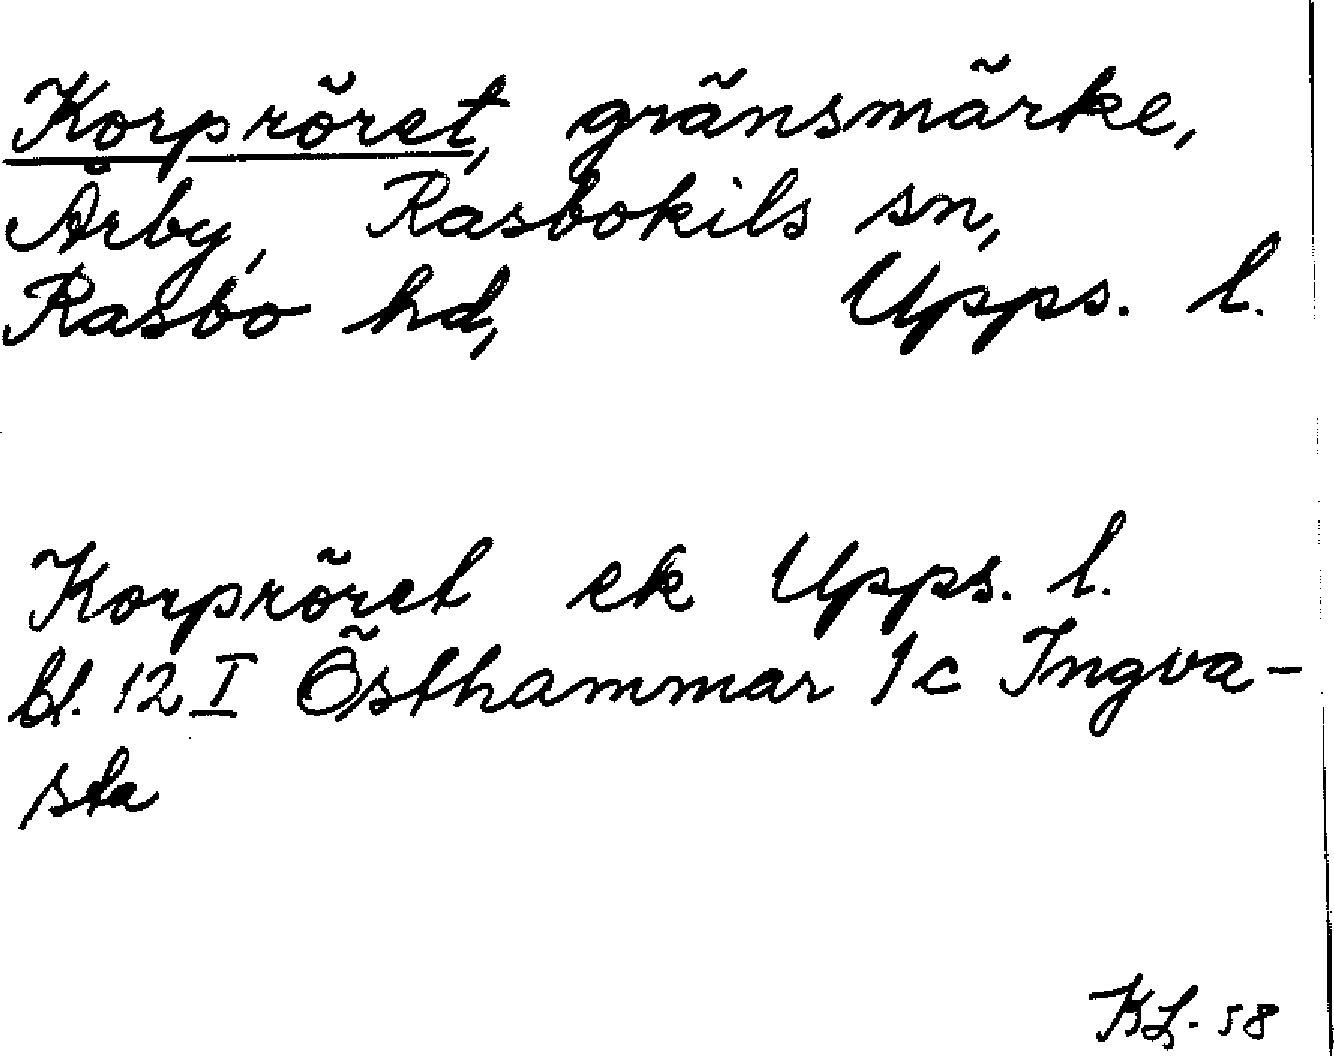 Korpröret, gränsmärke,
Ärby, Rasbokils sn,
Rasbo hd, Upps. l.
Korpröret ek Upps. l.
bl. 12 I Östhammar 1c Ingva-
sta
KL. 58